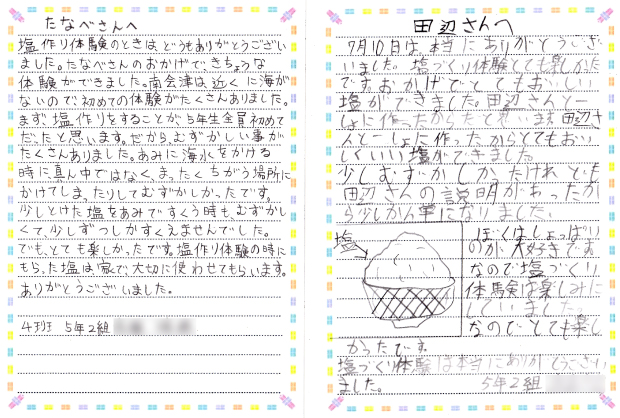 たなべさんへ
塩作り体験のときは、どうもありがとうござい
ました。たなべさんのおかげできちょうな
体験ができました。南会津は、近くに海が
ないので初めての体験がたくさんありました。
まず、塩作りをすることが、5年生全員初めて
だったと思います。だから、むずかしい事が
たくさんありました。あみに海水をかける
時に真ん中ではなく、まったくちがう場所に
かけてしまったりしてむずかしかったです。
少しとけた塩をあみですくう時も、むずかし
くて、少しずつしかすくえませんでした。
でも、とても楽しかったです。塩作り体験の時に
もらった塩は家で、大切に使わせてもらいます。
ありがとうございました。
4班 5年2組
田辺さんへ
7月10日は、本当にありがとうござ
いました。塩づくり体験とても楽しかった
ですおかげでとてもおいしい
塩ができました。田辺さんと一
しょに作ったからだと思います田辺さ
んと一しょに作ったからとてもおい
しくいい塩ができました。
少しむずかしかったけれども
田辺さんの説明があったか
ら少しかん単になりました。
塩
ぼくはしょっぱい
のが大好きです
なので塩づくり
体験は楽しみに
していました。
なのでとても楽し
かったです。
塩づくり体験は本当にありがとうござい
ました。
5年2組